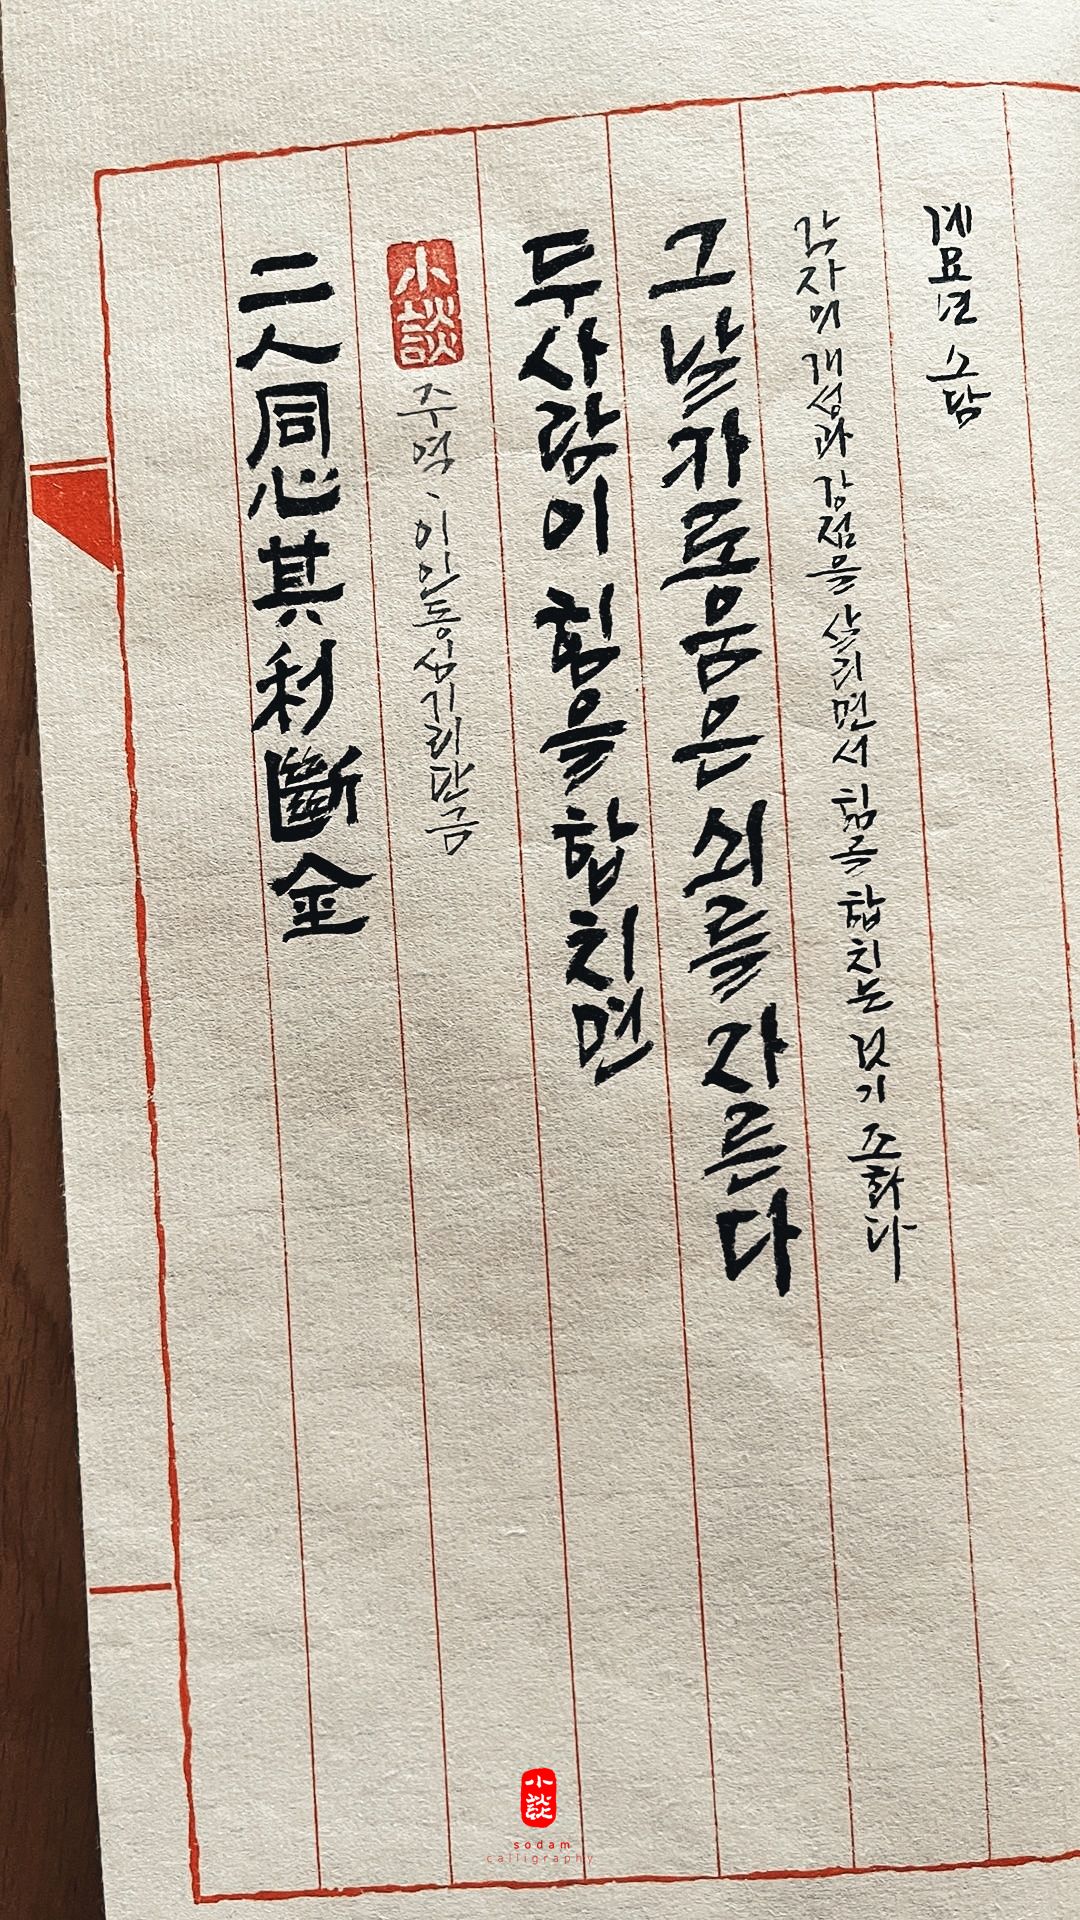 二人同心其利斷金
小談
주역, 이인동심기리단금
두사람이 힘을 합치면
그 날카로움은 쇠를 자른다
각자의 개성과 강점을 살리면서 힘을 합치는 것이 조화다
계묘년 소담
小談
sodam
calligraphy